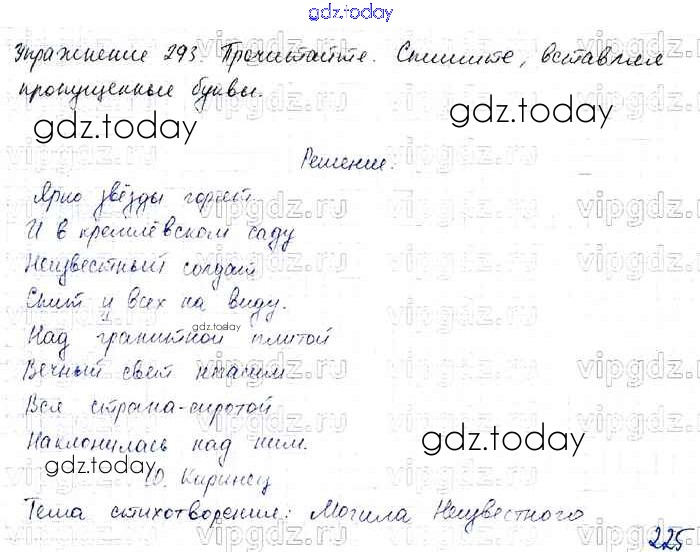 gdz.today
Упражнение 293. Прочитайте. Спишите, вставляя
пропущенные буквы.
gdz.today
gdz.today
Решение.
Ярко звёзды горят,
vipgdz.ru
И в кремлёвском саду
Неизвестный солдат
vipgdz.ru
Спит у всех на виду.
gdz.today
Над гранитной плитой
vipgdz.ru
Вечный свет
vipgdz.ru
Вся страна-сиротой
vipgdz.ru
gdz.today
Наклонилась над ним.
gdz.today
Ю. Киринец
Тема стихотворения: Могила Неизвестного
225